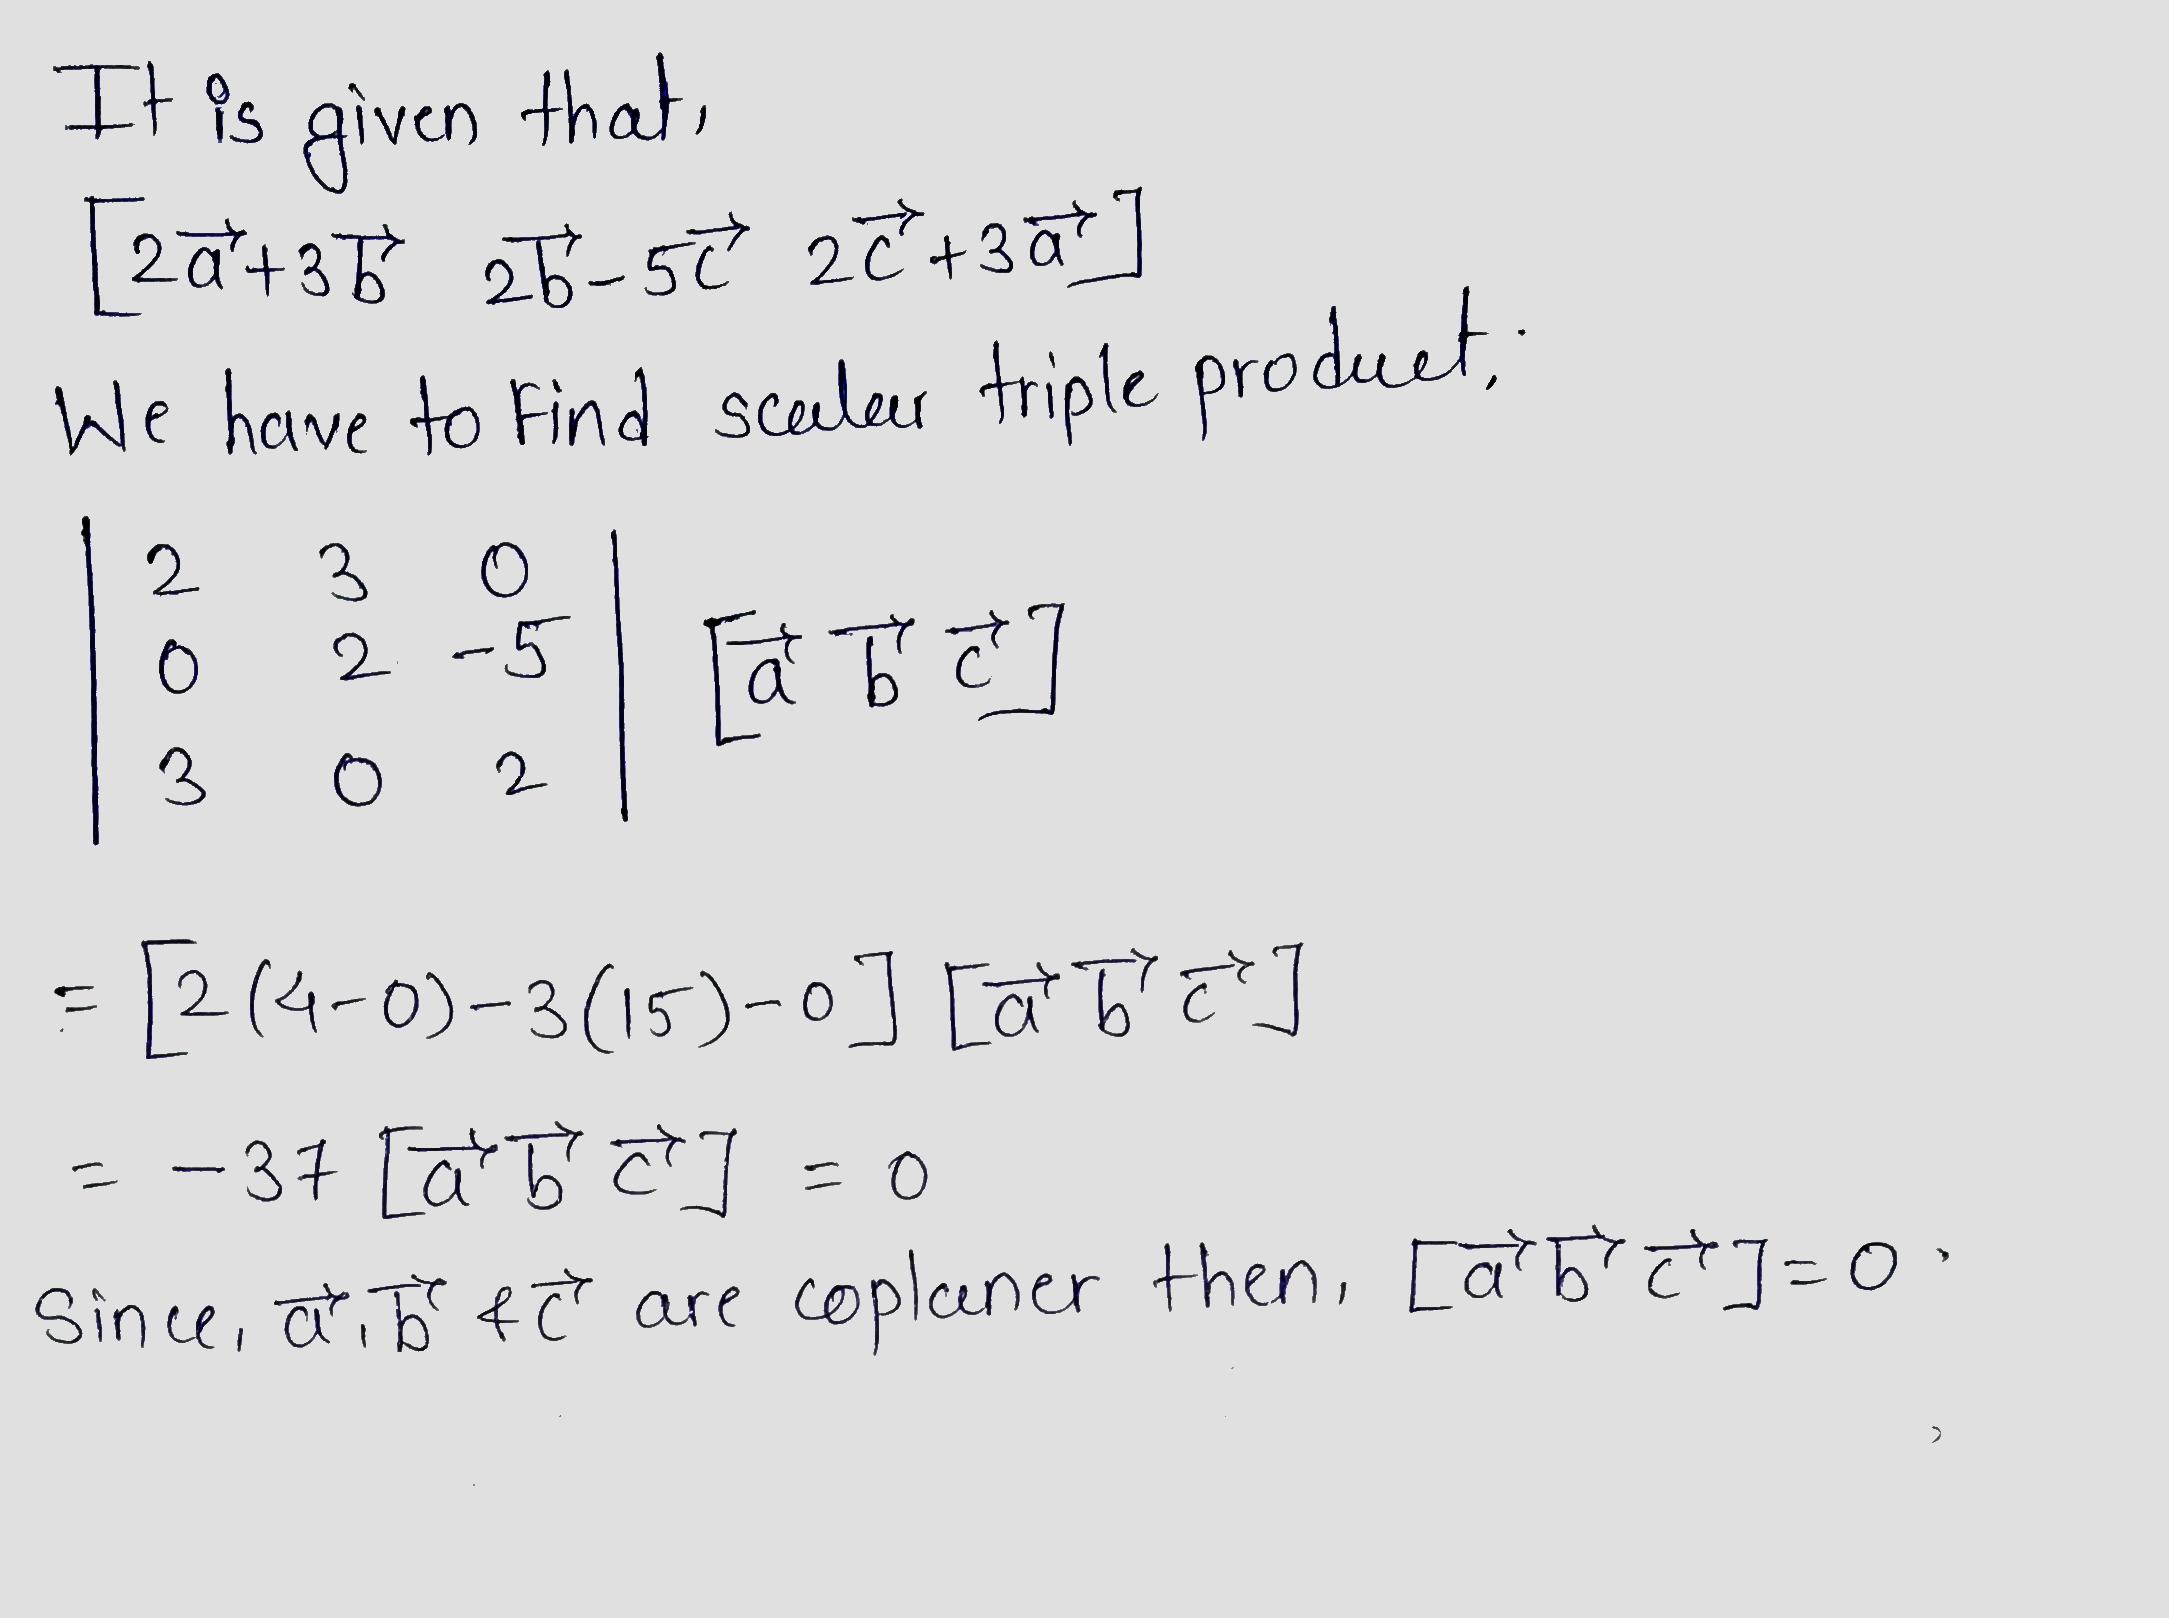 It is given that,
[2a⃗+3b⃗ 2b⃗-5c⃗ 2c⃗+3a⃗]
We have to Find scalar triple product,
| 2 3 0 |
| 0 2 -5 | [a⃗ b⃗ c⃗]
| 3 0 2 |
= [2(4-0)-3(15)-0] [a⃗ b⃗ c⃗]
= -37 [a⃗ b⃗ c⃗] = 0
Since, a⃗, b⃗ & c⃗ are coplaner then, [a⃗ b⃗ c⃗]=0.